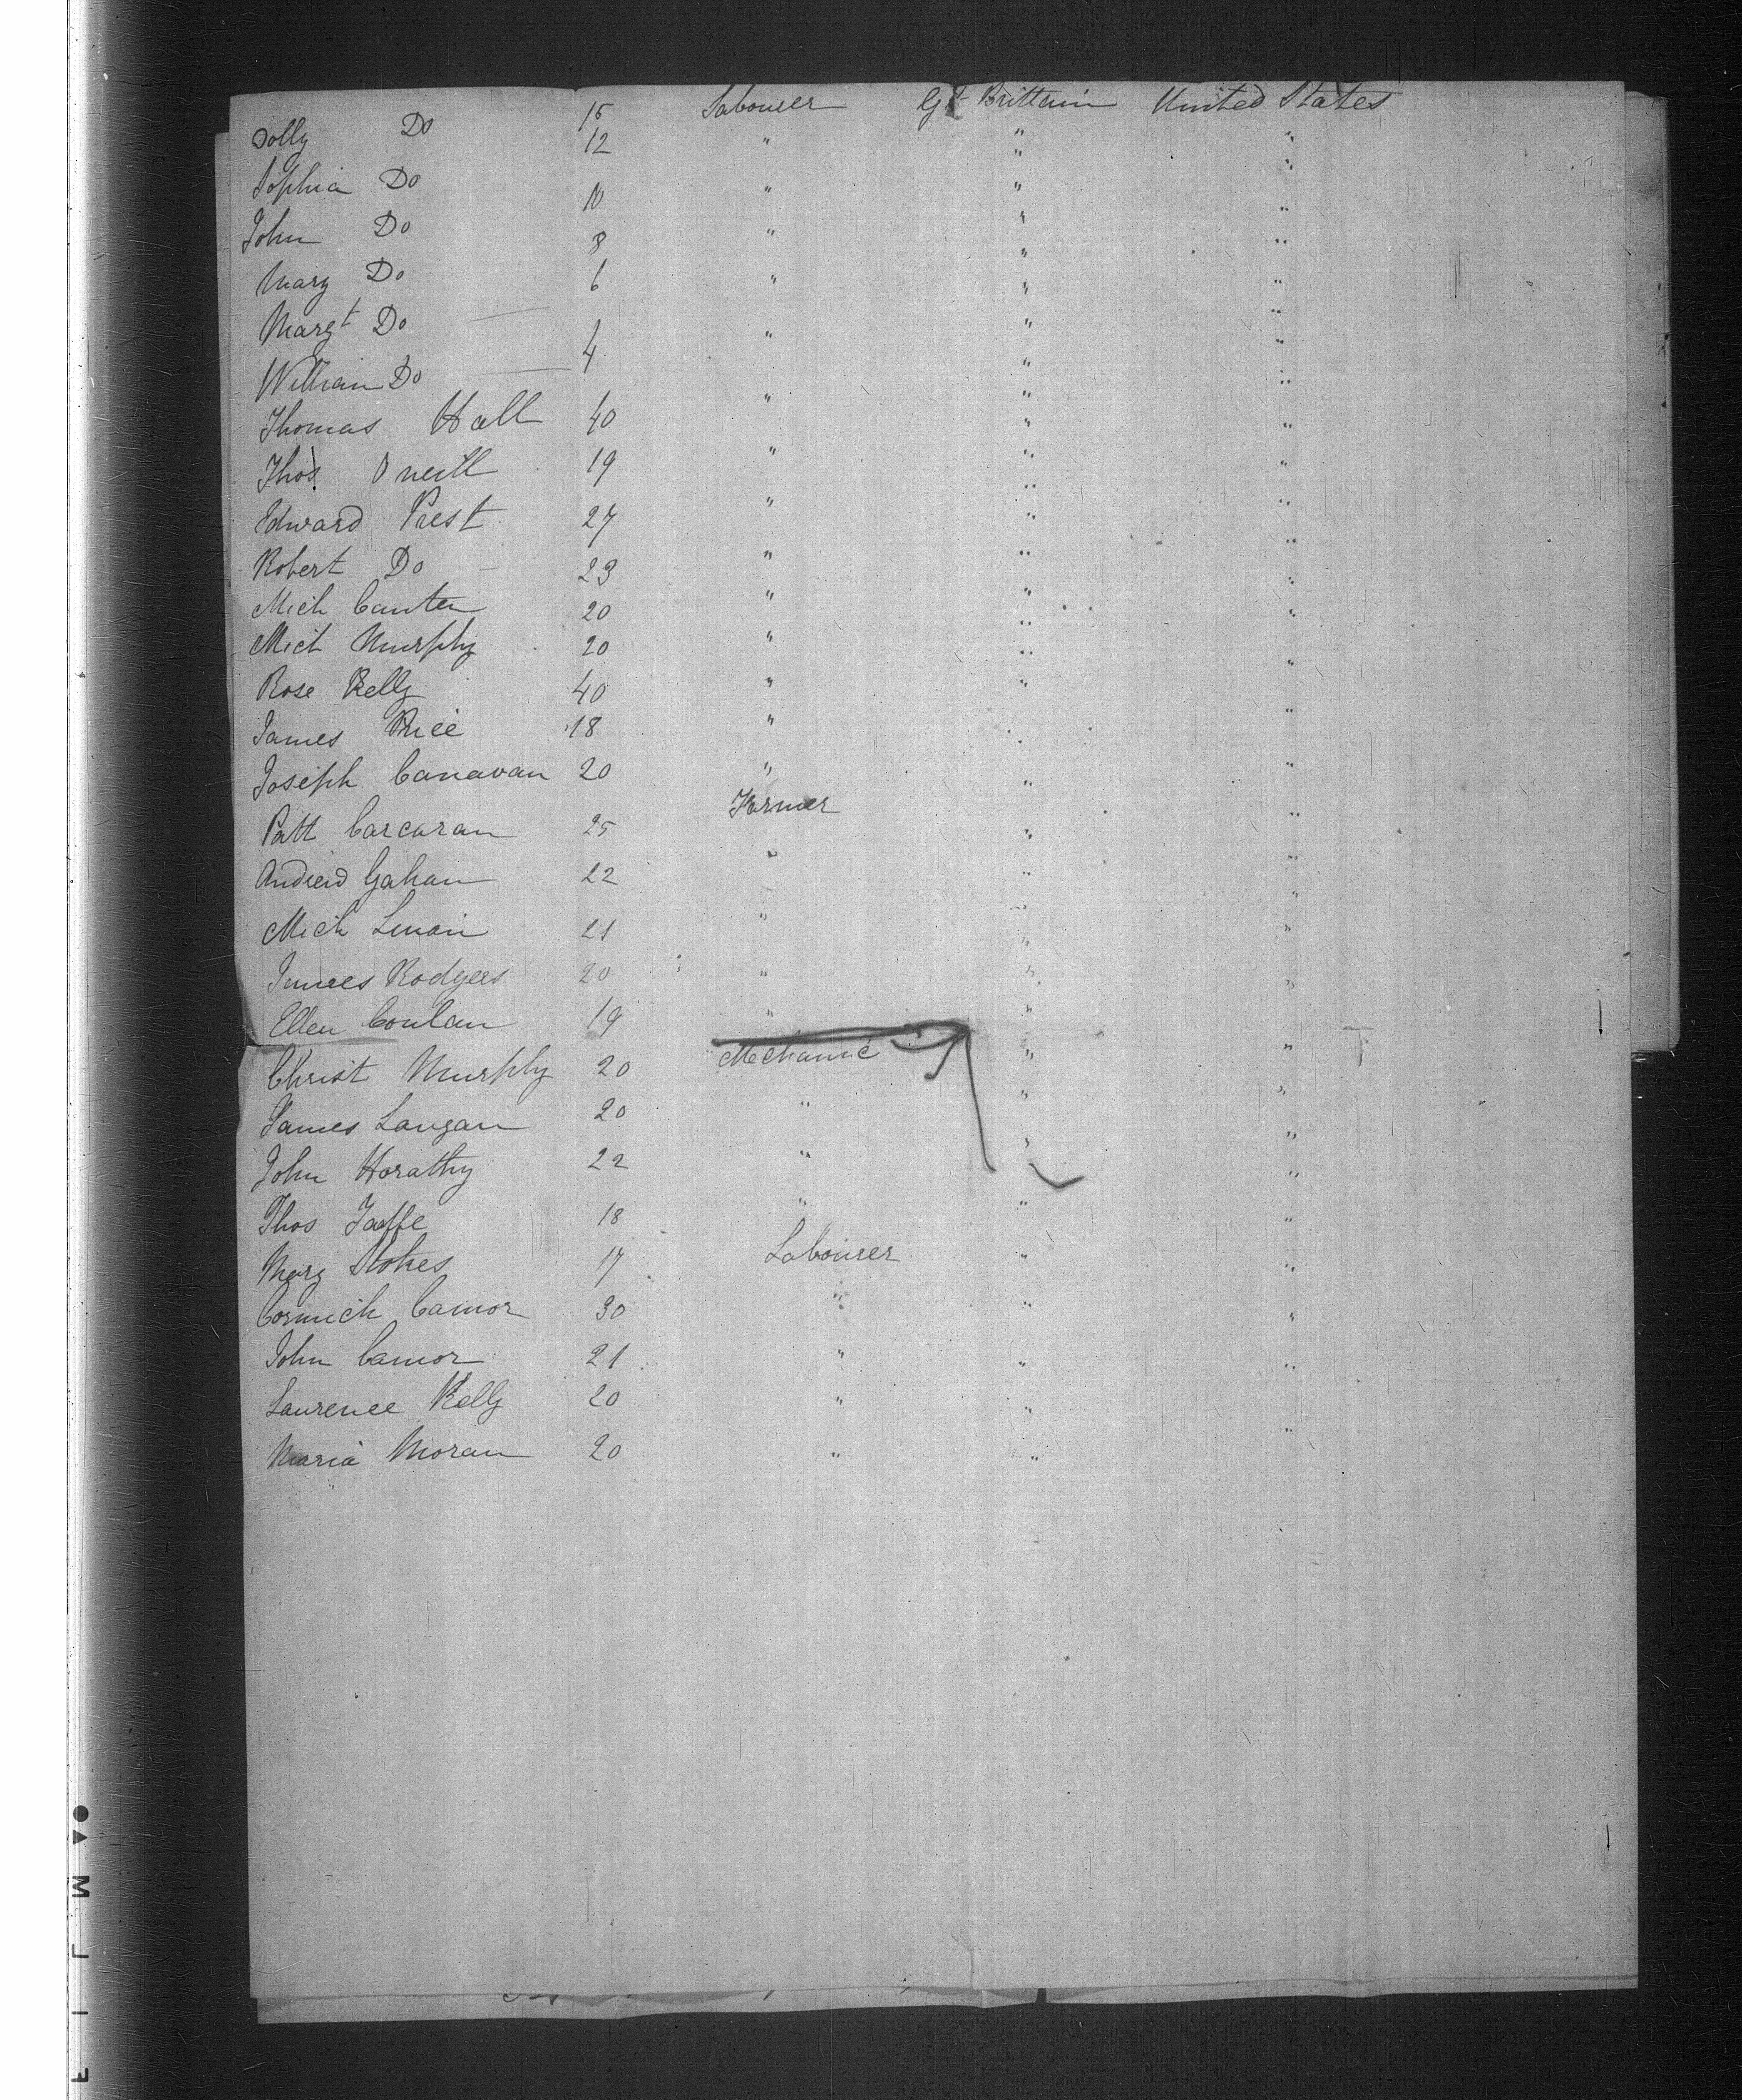 Dolly Do 15 Labourer Gt Brittain United States
Sophia Do 12 " " "
John Do 10 " " "
Mary Do 8 " " "
Margt Do 6 " " "
William Do 4 " " "
Thomas Hall 40 " " "
Thos. Oneill 19 " " "
Edward Prest 27 " " "
Robert Do 23 " " "
Mich Canten 20 " " "
Mich Murphy 20 " " "
Rose Kelly 40 " " "
James Rice 18 " " "
Joseph Canavan 20 " " "
Patt Carcaran 25 Farmer " "
Gahan 22 " " "
Mich 21 " " "
James Rodgers 20 " " "
Ellen Conlan 19 " " "
Christ Murphy 20 Mechanic " "
James Langan 20 " " "
John Horathy 22 " " "
Thos Taaffe 18 " " "
Mary Stokes 17 Labourer " "
Cormick Camor 30 " " "
John Camor 21 " " "
Laurence Kelly 20 " " "
Maria Moran 20 " " "